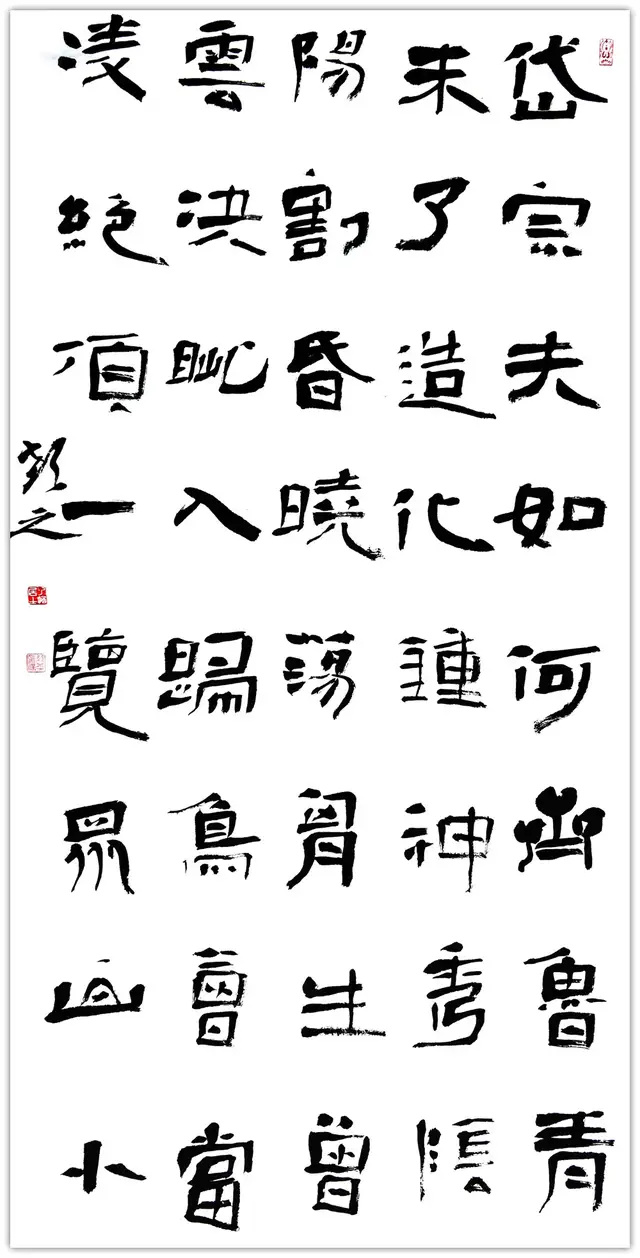 岱宗夫如何齊魯青
未了造化鍾神秀陰
陽割昏曉蕩胷生曾
雲決眦入歸鳥會當
凌絕頂一覽眾山小
之